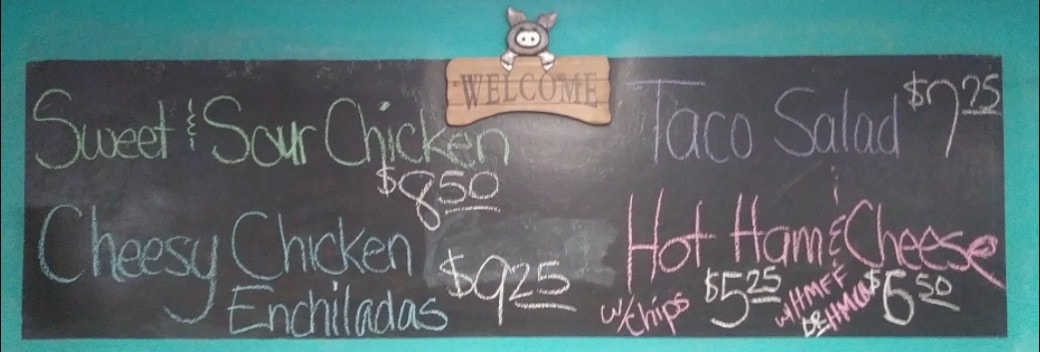 WELCOME
Sweet & Sour Chicken
$8.50
Cheesy Chicken
Enchiladas $9.25
Taco Salad $7.25
Hot Ham & Cheese
w/chips $5.25 w/HMFF $6.50
OR HMCA